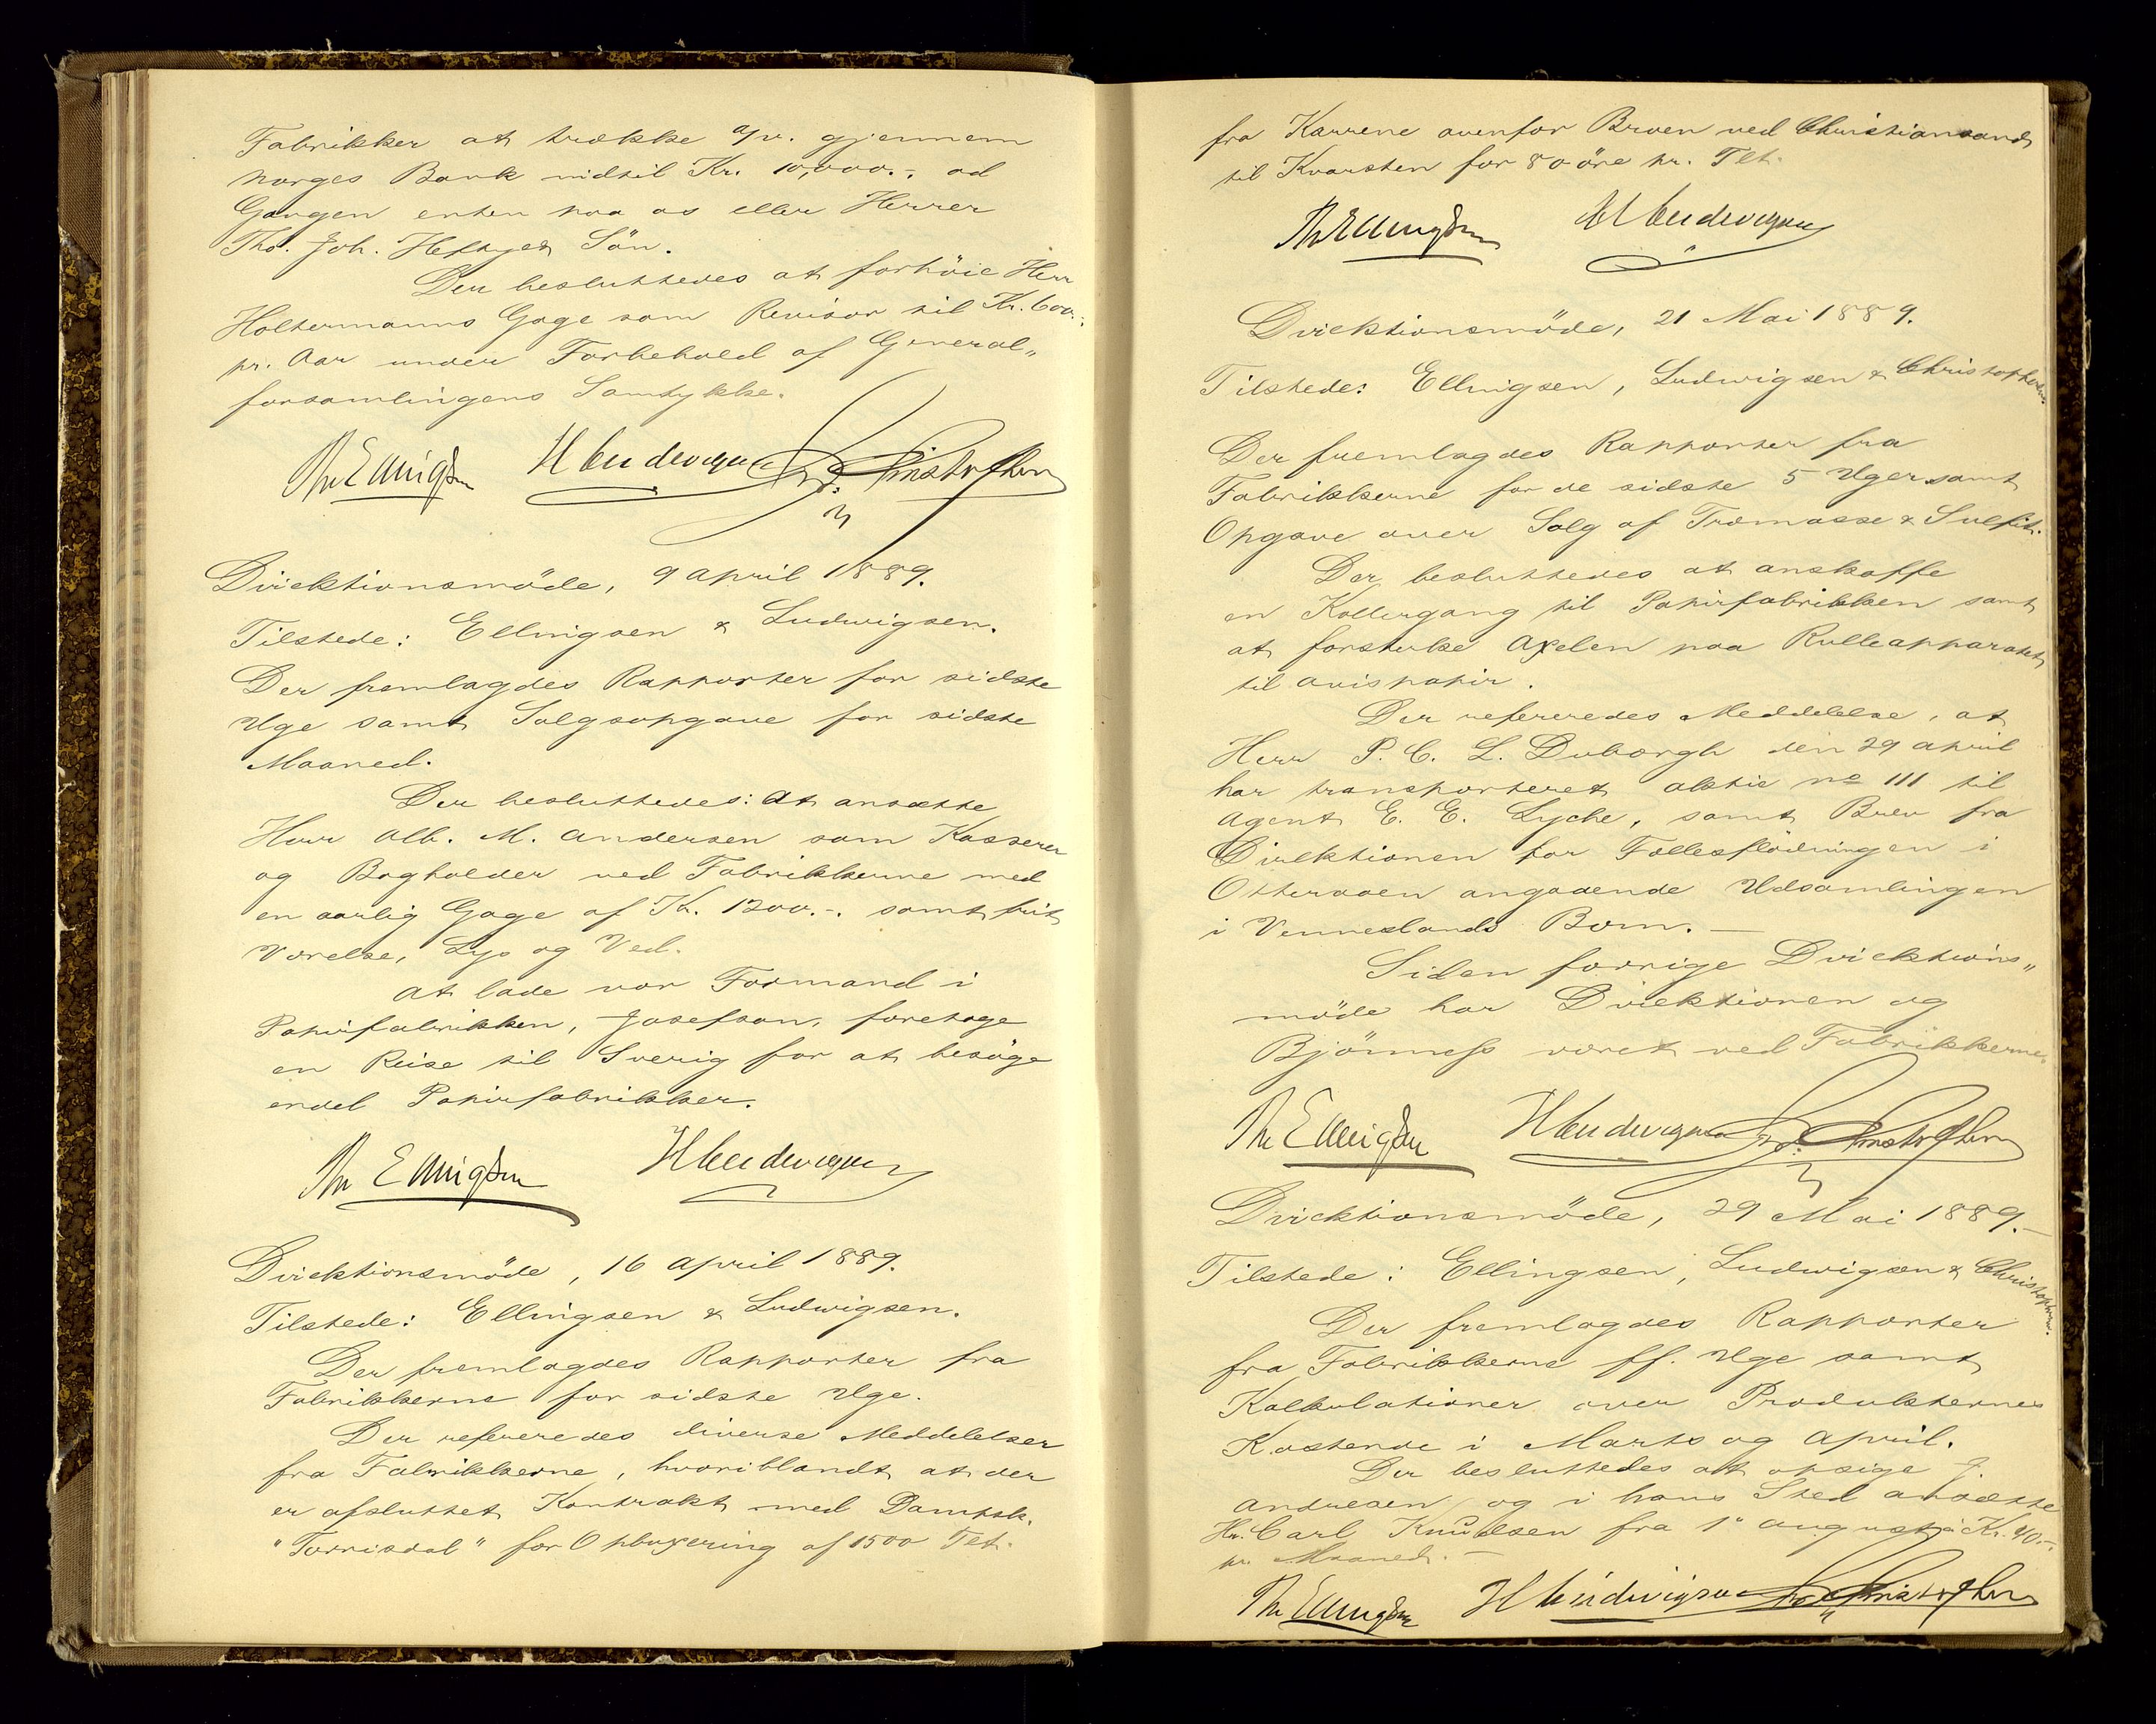 Fabrikker at trække a/v. gjennem
Norges Bank indtil Kr. 10,000.-. ad
Gangen enten paa os eller Herrer
Tho. Joh. Heftyes Sön.
Der besluttedes at forhöie Herr
Holtermanns Gage som Revisor til Kr. 600.-.
pr. Aar under Forbehold af General„
forsamlingens Samtykke.
Th Ellingsen H Ludwigsen Chr. Christophersen
Direktionsmöde, 9 April 1889.
Tilstede: Ellingsen & Ludwigsen.
Der fremlagdes Rapporter for sidste
Uge samt Salgsopgave for sidste
Maaned.
Der besluttedes: At ansætte
Herr Alb. M. Andersen som Kasserer
og Bogholder ved Fabrikkerne med
en aarlig Gage af Kr. 1200.-. samt frit
Værelse, Lys og Ved.
At lade vor Formand i
Papirfabrikken, Josefson, foretage
en Reise til Sverig for at besöge
endel Papirfabrikker.
Th Ellingsen H Ludwigsen
Direktionsmöde, 16 April 1889.
Tilstede: Ellingsen & Ludwigsen.
Der fremlagdes Rapporter fra
Fabrikkerne for sidste Uge.
Der refereredes diverse Meddelelser
fra Fabrikkerne, hvoriblandt at der
er afsluttet Kontrakt med Dampsk.
"Torrisdal" for Opbuxering af 1500 Tlt.
fra Karrene ovenfor Broen ved Christiansand
til Kvarsten for 80 öre pr. Tlt.
Th Ellingsen H Ludwigsen
Direktionsmöde, 21 Mai 1889.
Tilstede: Ellingsen, Ludwigsen & Christophersen.
Der fremlagdes Rapporter fra
Fabrikkerne for de sidste 5 Uger samt
Opgave over Salg af Træmasse & Sulfit.
Der besluttedes at anskaffe
en Kollergang til Papirfabrikken samt
at forsterke Axelen paa Rulleapparatet
til Avispapir.
Der refereredes Meddelelse, at
Herr P. C. L. Duborgh den 29 April
har transporteret Aktie No 111 til
Agent E. E. Lyche, samt Brev fra
Direktionen for Fællesflödningen i
Otteraaen angaaende Udsamlingen
i Venneslands Bom. —
Siden forrige Direktions„
möde har Direktionen og
Bjönness været ved Fabrikkerne.
Th Ellingsen H Ludwigsen Chr. Christophersen
Direktionsmöde, 29 Mai 1889. —
Tilstede: Ellingsen, Ludwigsen & Christophersen.
Der fremlagdes Rapporter
fra Fabrikkerne ff. Uge samt
Kalkulationer over Produkternes
Kostende i Marts og April.
Der besluttedes at opsige J.
Andresen og i hans Sted ansætte
Hr. Carl Knudsen fra 1" August à Kr. 40.-.
pr. Maaned. —
Th Ellingsen H Ludwigsen Chr. Christophersen